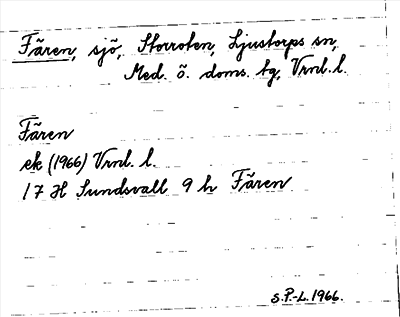 Fären, sjö, Storroten, Ljustorps sn,
Med. ö. doms. tg, Vrnl. l.
Fären
ek (1966) Vrnl. l.
17 H Sundsvall 9 h Fären
S.P.-L. 1966.